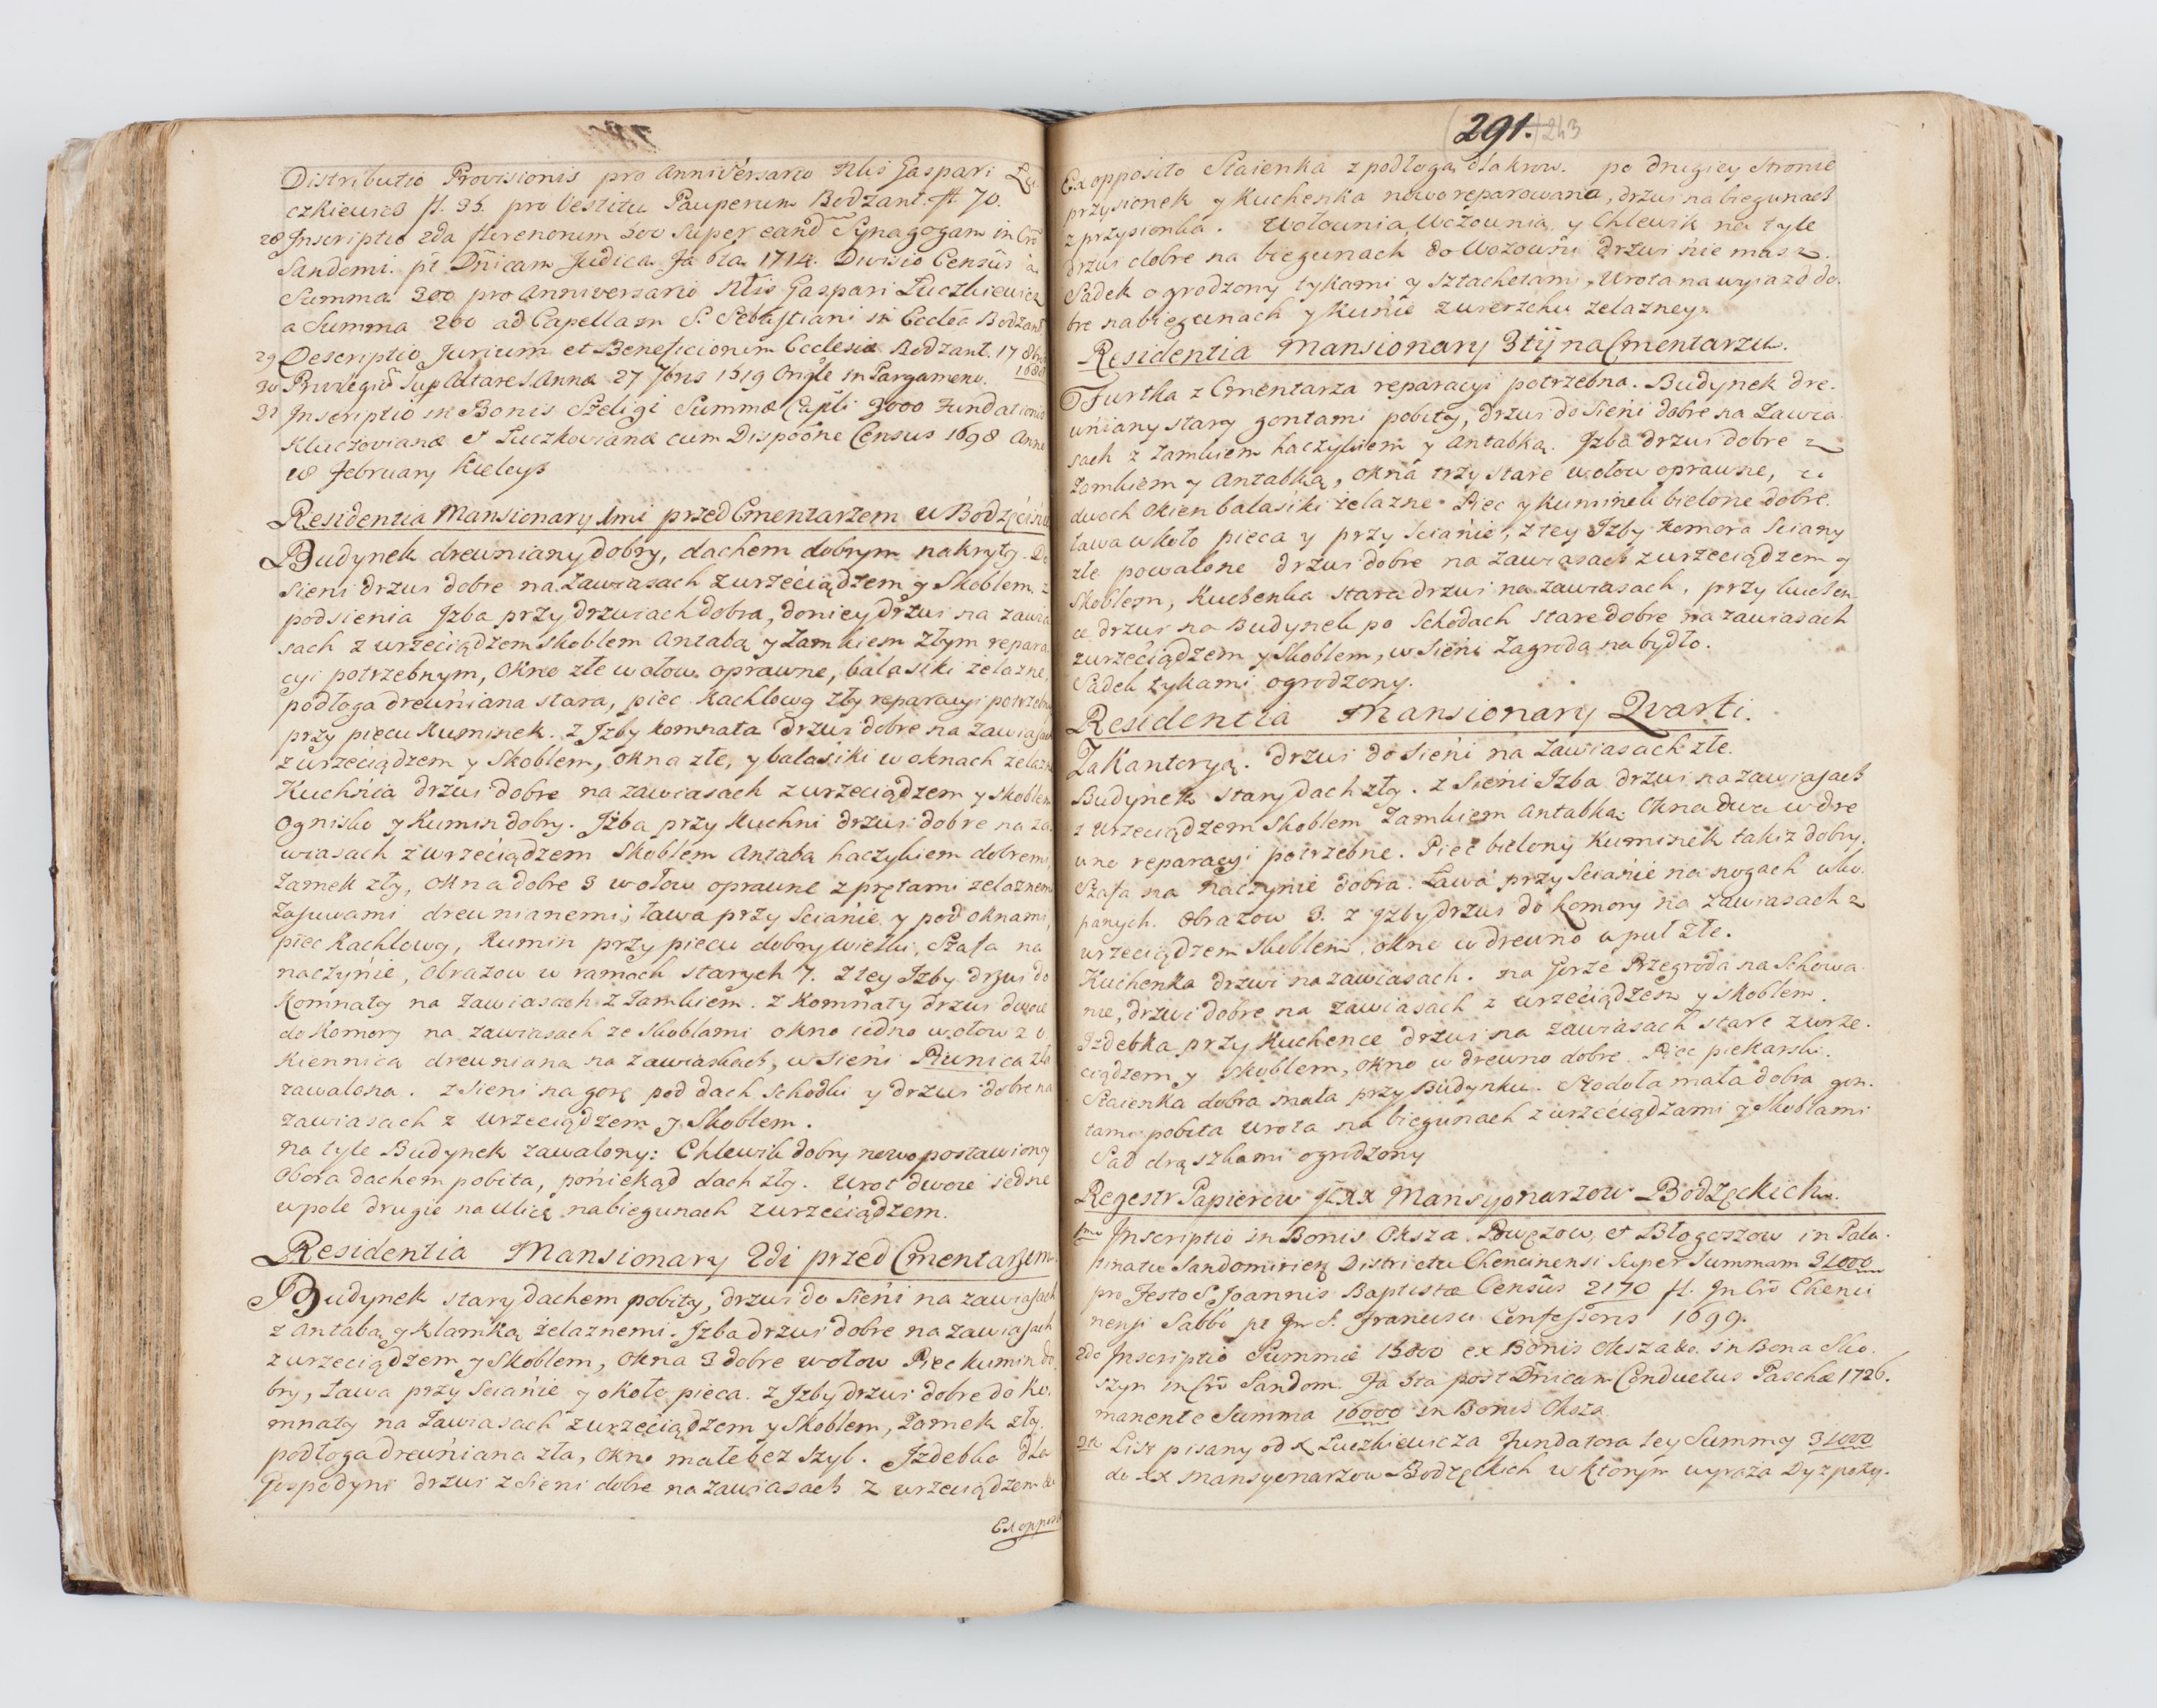 Distributio Provisionis pro Anniversario Nlis Gaspari Łu-
czkiewicz fl. 35. pro Vestitu Pauperum Bodzant. fl 70.
28 Inscriptio 2da florenorum 300 Super eand Synagogam in Cro
Sandomi. pt Dnicam Judica fa 6ta 1714. Divisio Census a
Summa 300 pro Anniversario Nlis Gaspari Łuczkiewicz
a Summa 200 ad Capellam S. Sebastiani in Eccleã Bodzant
29 Descriptio Jurium et Beneficiorum Ecclesiæ Bodzant. 17 8bris
30 Privilegiũ Sup Altare S. Annæ 27 7bris 1519 Origle in Pargameno.
31 Inscriptio in Bonis Szeligi Summæ Capłi 3000 Fundationis
Kluczoviana et Łuczkoviana cum Dispoõne Census 1698 Anno
18 February Kielcys
Residentia Mansionary 1mi przed Cmentarzem w Bodzęcinie
Budynek drewniany dobry, dachem dobrym nakryty. Do
Sieni drzwi dobre na Zawiasach z wrzeciądzem y Skoblem. z
podsienia Izba przy drzwiach dobra, do niey drzwi na zawia
sach z wrzeciądzem skoblem Antabą y Zamkiem złym repara
cyi potrzebnym, Okno złe w ołow oprawne, balasiki zelazne,
podłoga drewniana stara, piec Kachlowy zły reparacyi potrzebny
przy piecu Kuminek. z Izby komnata Drzwi dobre na Zawiasach
z wrzeciądzem y Skoblem, Okna złe, y balasiki w oknach zelazne
Kuchnia drzwi dobre na zawiasach z wrzeciądzem y skoblem
Ognisko y Kumin dobry. Izba przy Kuchni drzwi dobre na za-
wiasach z wrzeciądzem Skoblem Antaba haczykiem dobremi,
Zamek zły, okna dobre 3 w ołow oprawne z prętami zelaznemi
Zasuwami drewnianemi, ława przy Scianie y pod oknami,
piec Kachlowy, Kumin przy piecu dobry wielki, Szafa na
naczynie, Obrazow w ramach starych 7. Z tey Izby drzwi do
Komnaty na Zawiasach z Zamkiem. z Komnaty drzwi dwoie
do Komory na zawiasach ze skoblami okno iedno w ołow z o
kiennica drewniana na zawiaskach, w Sieni Piwnica zła
zawalona. z Sieni na gorę pod dach Schodki y drzwi dobre na
zawiasach z wrzeciądzem y Skoblem.
na tyle Budynek zawalony: Chlewik dobry nowo postawiony
Obora dachem pobita, poniekąd dach zły. Wrot dwoie iedne
w pole drugie na Ulicę na biegunach z wrzeciądzem.
Residentia Mansionary 2di przed Cmentarzem.
Budynek stary dachem pobity, drzwi do Sieni na zawiasach
z Antabą y Klamką żelaznemi. Izba drzwi dobre na zawiasach
z wrzeciądzem y Skoblem, Okna 3 dobre w ołow Piec kumin do
bry, ława przy Scianie y około pieca. z Izby drzwi dobre do Ko-
mnaty na Zawiasach z wrzeciądzem y Skoblem, Zamek zły.
podłoga drewniana zła, Okno małe bez szyb. Izdebka dla
Gospodyni drzwi z Sieni dobre na zawiasach z wrzeciądzem
Ex opposi
291. 243
Ex opposito Staienka z podłogą dla krow. po drugiey Stronie
przysionek y Kuchenka nowo reparowana, drzwi na biegunach
z przysionka. Wołownia, Wozownia, y Chlewik na tyle
drzwi dobre na biegunach do Wozowni drzwi nie masz.
Sadek ogrodzony tykami y Sztachetami, Wrota na wyiazd do-
bre na biegunach y Kunie z wierzchu zelazney.
Residentia Mansionary 3tij na Cmentarzu.
Furtka z Cmentarza reparacyi potrzebna. Budynek dre-
wniany stary gontami pobity, drzwi do Sieni dobre na Zawia-
sach z Zamkiem haczykiem y Antabką. Izba drzwi dobre z
Zamkiem y Antabką, okna trzy stare w ołow oprawne, u
dwoch Okien balasiki zelazne. Piec y kuminek bielone dobre.
ława wkoło pieca y przy Scianie, z tey Izby Komora Sciany
złe powalone drzwi dobre na zawiasach z wrzeciądzem y
Skoblem, Kuchenka stara drzwi na zawiasach, przy kuchen-
ce drzwi na Budynek po Schodach stare dobre na zawiasach
z wrzeciądzem y Skoblem, w Sieni Zagroda na bydło.
Sadek tykami ogrodzony.
Residentia Mansionary Qvarti.
Za Kantoryą. drzwi do Sieni na Zawiasach złe.
Budynek stary dach zły. z Sieni Izba drzwi na zawiasach
z wrzeciądzem Skoblem Zamkiem Antabką. Okna dwa w dre
wno reparacyi potrzebne. Piec bielony Kuminek takiz dobry.
Szafa na naczynie dobra. Ława przy Scianie na nogach wko-
panych. Obrazow 3. z Izby drzwi do komory na zawiasach z
wrzeciądzem skoblem, okno w drewno wpuł złe.
Kuchenka drzwi na zawiasach. na Gorze Przegroda na Schowa-
nie, drzwi dobre na zawiasach z wrzeciądzem y skoblem.
Izdebka przy Kuchence drzwi na zawiasach stare z wrze-
ciądzem y Skoblem, okno w drewno dobre. Piec piekarski.
Staienka dobra mała przy Budynku. Stodoła mała dobra gon-
tami pobita wrota na biegunach z wrzeciądzami y Skoblami
Sad drąszkami ogrodzony
Regestr Papierow JXX Mansyonarzow Bodzęckich.
1mo Inscriptio in Bonis Oksza. Powęzow, et Błogoszow in Pala-
tinatu Sandomirien Districtu Chencinensi Super Summam 31000
pro Festo S Joannis Baptistæ Census 2170 fl. In Cro Chenci
nensi Sabbo pt Fm S. Francisci Confessoris 1699.
2do Inscriptio Summæ 15000 ex Bonis Oksza in Bona Sko-
szyn in Cro Sandom. Fa 3ta post Dnicam Conductus Paschæ 1726.
manente Summa 16000 in Bonis Oksza
3tio List pisany od X Łuczkiewicza Fundatora tey Summy 31000
do XX Mansyonarzow Bodzęckich w ktorym wyraża Dyzpozy-